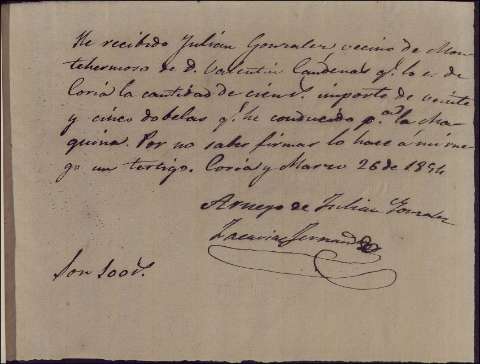 He recibido Julián Gonzalez vecino de Mon-
tehermoso de D. Valentin Cardenas q.e lo es de
Coria la cantidad de cien r.s importe de veinte
y cinco dobelas q.e he conducido p.a la Ma-
quina. Por no saber firmar lo hace á mi rue-
go un testigo. Coria y Marzo 26 de 1854
Aruego de Julian Gonzalez
Fernandez
Son 100 r.s